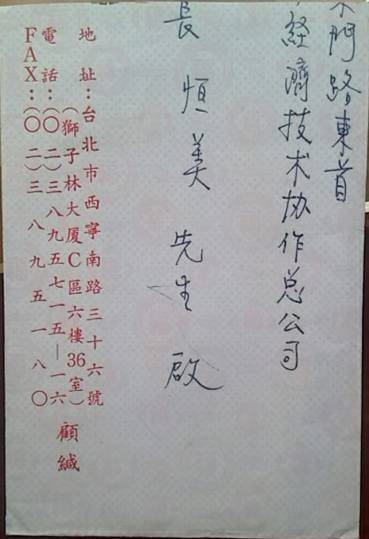 門路東首
經濟技术协作总公司
長恒美先生啟
地址：台北市西寧南路三十六號
(獅子林大厦C區六樓36室)
電話：(〇二)三八九五七一五—一六
FAX：(〇二)三八九五一八〇
顧緘